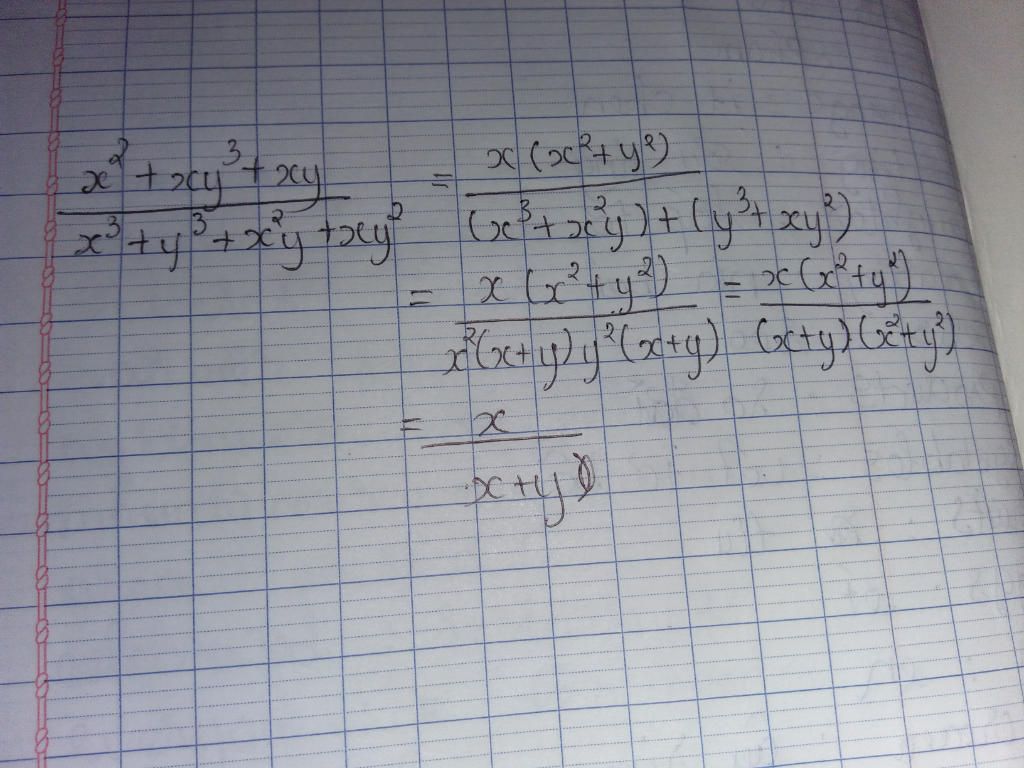 x² + xy³ + xy / x³ + y³ + x²y + xy² = x(x² + y²) / (x³ + x²y) + (y³ + xy²)
= x(x² + y²) / x²(x+y) y²(x+y) = x(x² + y²) / (x+y)(x² + y²)
= x / x+y